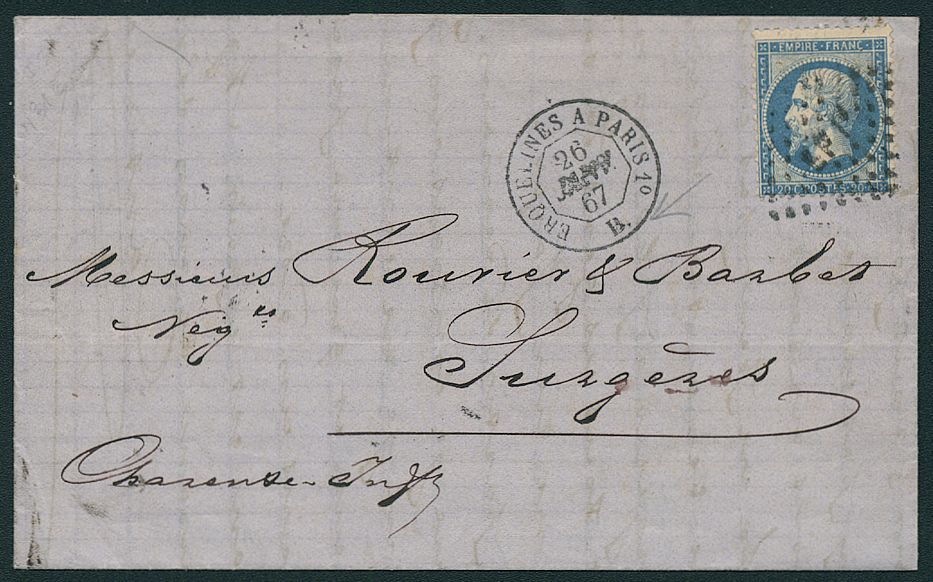 EMPIRE FRANC
20 C POSTES 20 C
ERQUELINES A PARIS 1º
26
67
B.
Messieurs Rouvier & Barbet
Nég.ts
Surgères
Charente-Infre